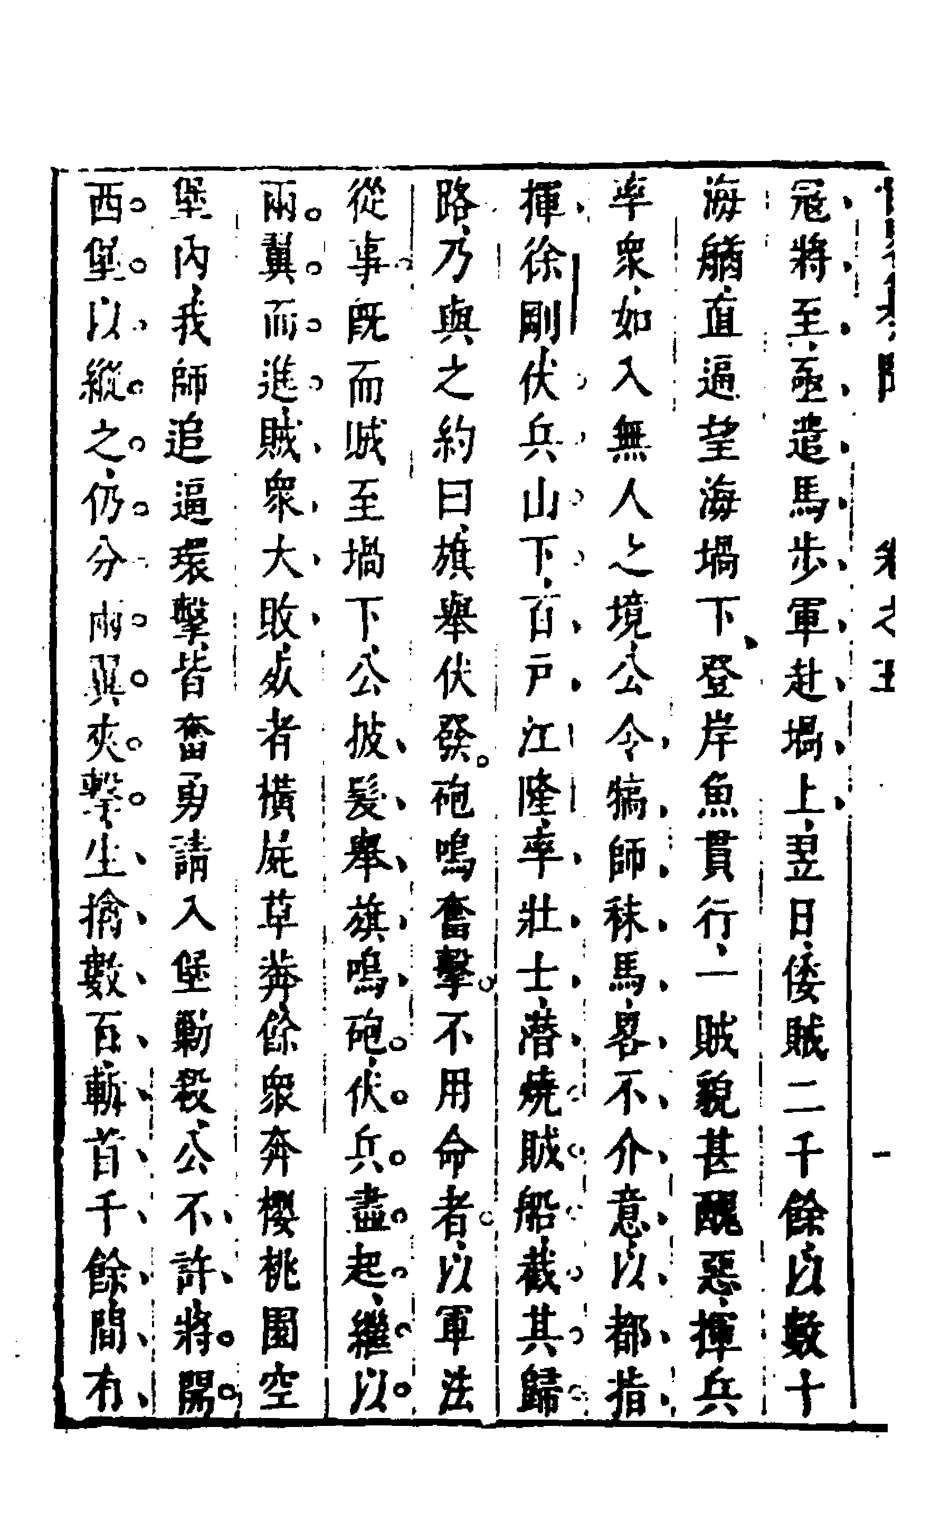 卷之五
一
寇將至亟遣馬步軍赴堝上翌日倭賊二千餘以數十
海艏直逼望海堝下登岸魚貫行一賊貌甚醜惡揮兵
率衆如入無人之境公令犒師秣馬畧不介意以都指
揮徐剛伏兵山下百戶江隆率壯士潛燒賊船截其歸
路乃與之約曰旗舉伏發砲鳴奮擊不用命者以軍法
從事既而賊至堝下公披髮舉旗鳴砲伏兵盡起繼以
兩翼而進賊衆大敗死者橫屍草莽餘衆奔櫻桃園空
堡內我師追逼環擊皆奮勇請入堡勦殺公不許將開
西堡以縱之仍分兩翼夾擊生擒數百斬首千餘間有